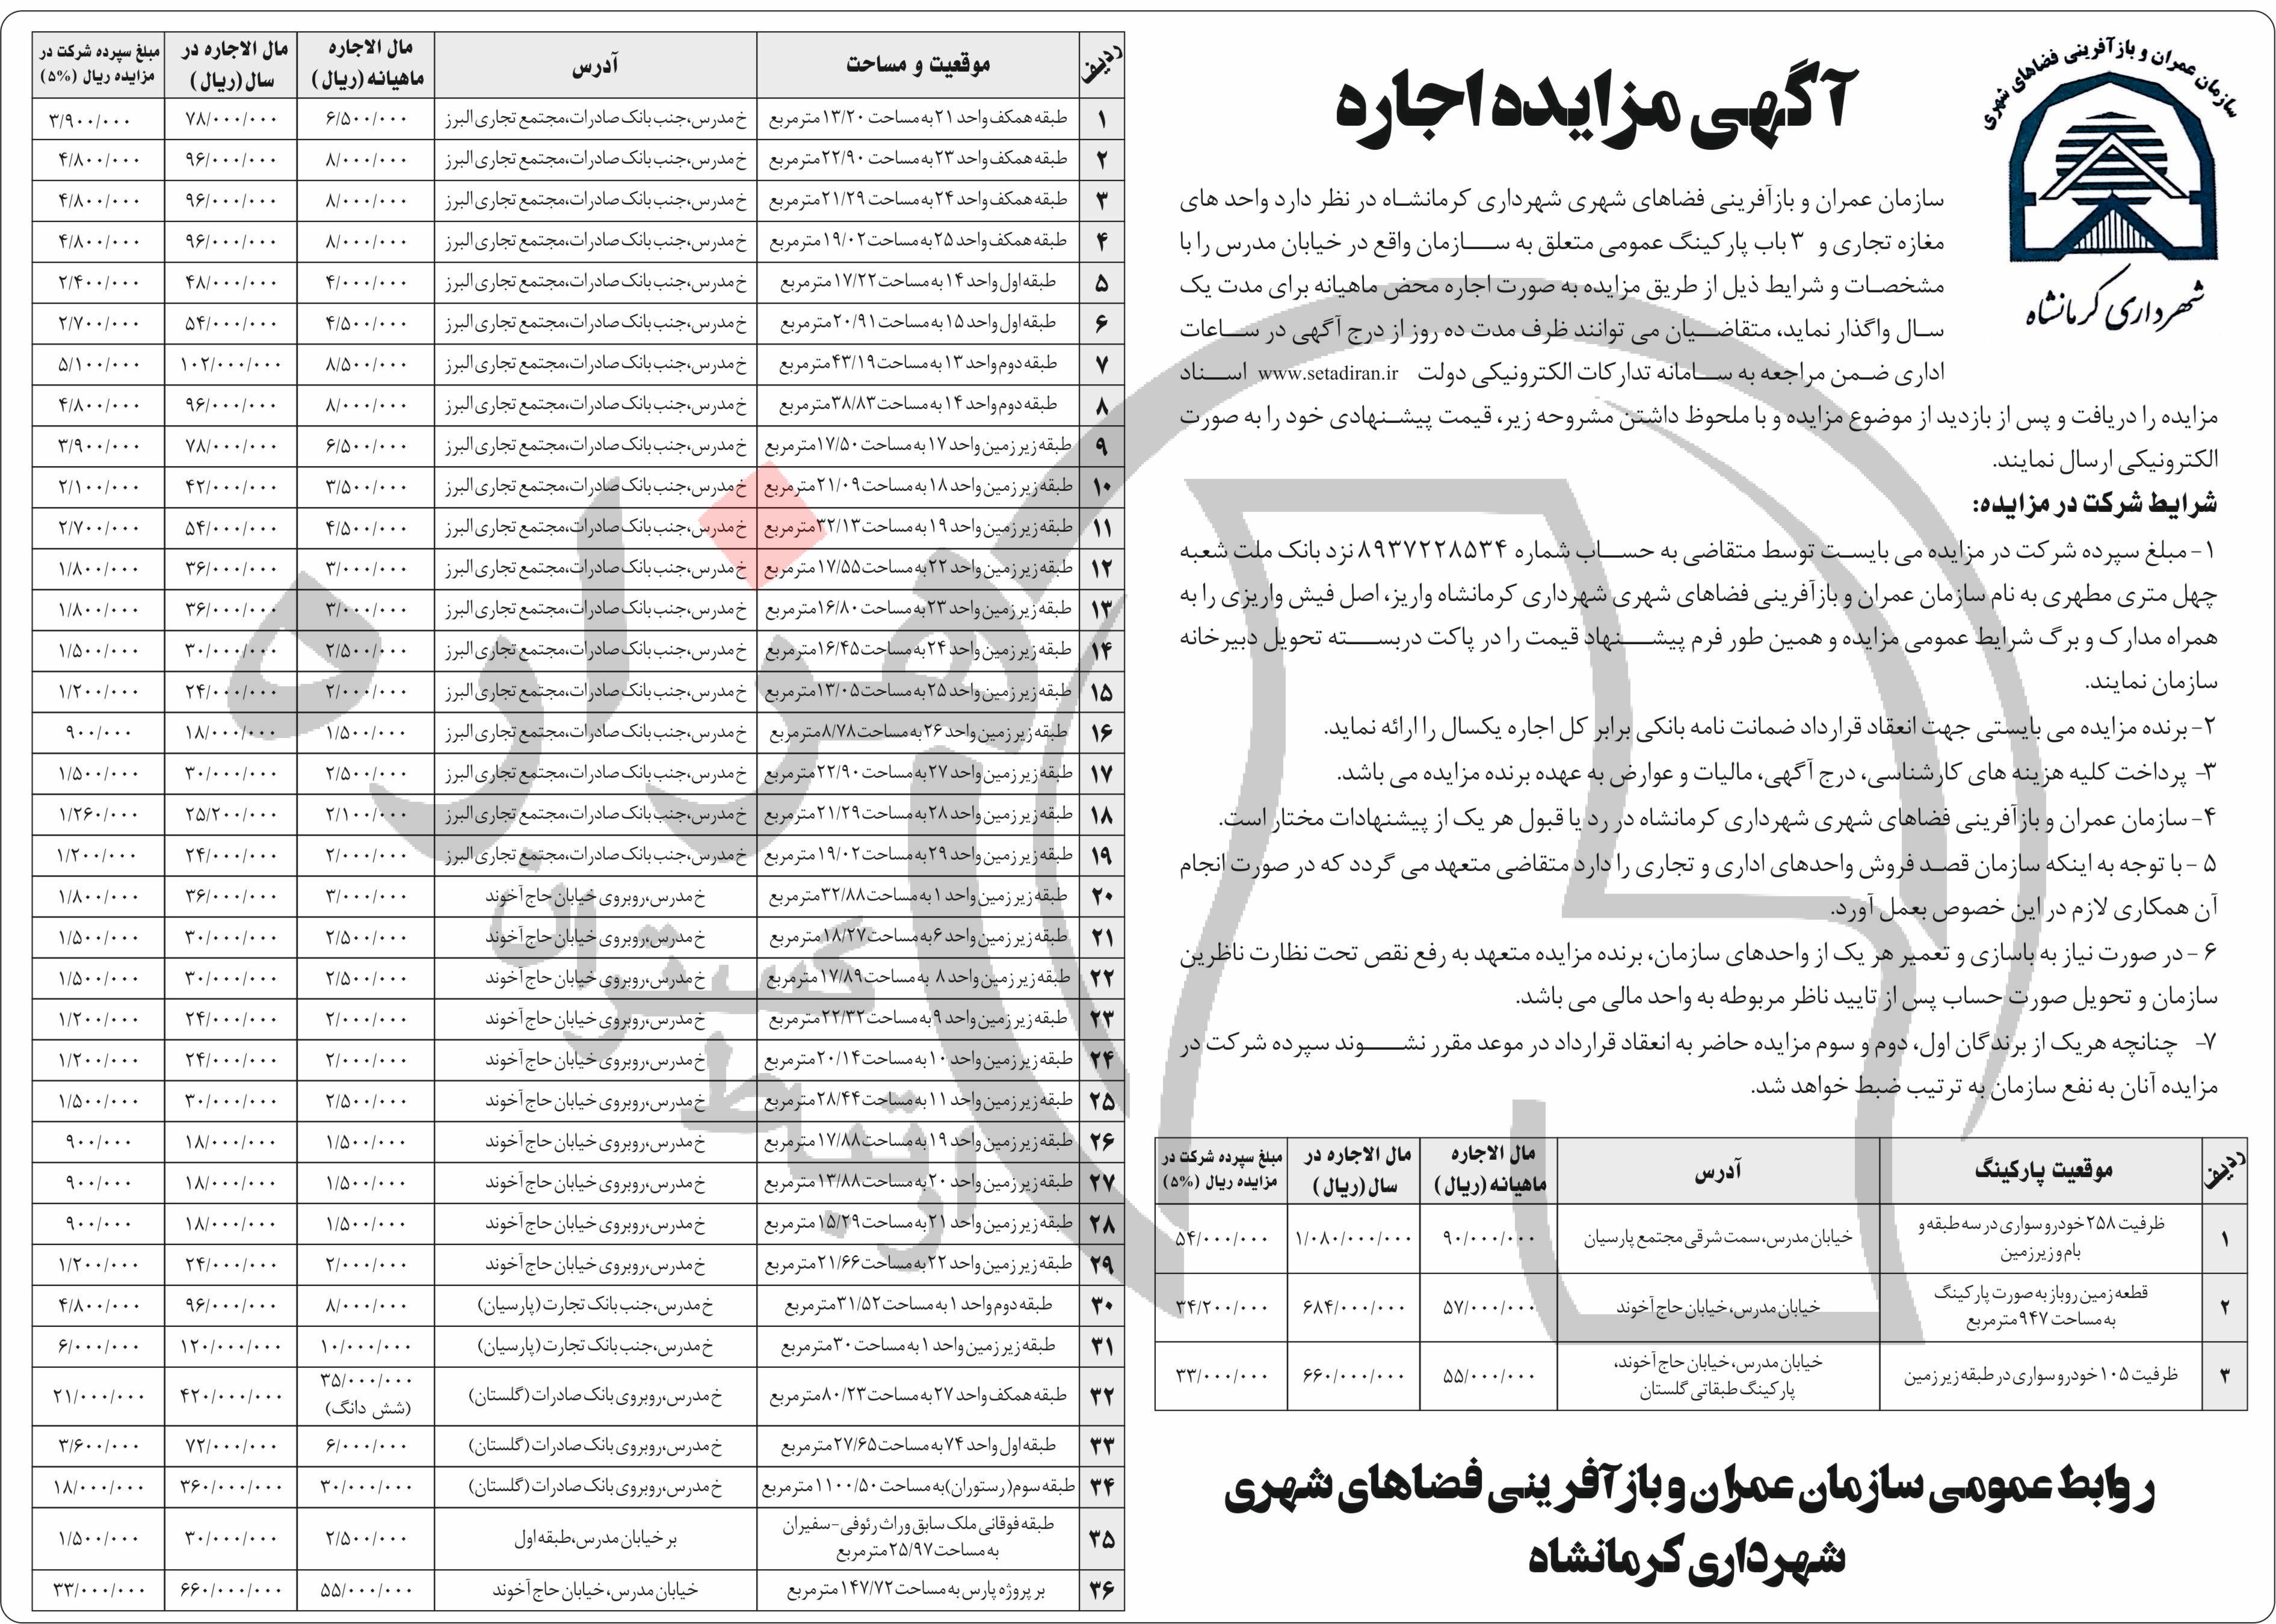 سازمان عمران و بازآفرینی فضاهای شهری
شهرداری کرمانشاه
آگهی مزایده اجاره
سازمان عمران و بازآفرینی فضاهای شهری شهرداری کرمانشاه در نظر دارد واحد های
مغازه تجاری و ۳ باب پارکینگ عمومی متعلق به سازمان واقع در خیابان مدرس را با
مشخصات و شرایط ذیل از طریق مزایده به صورت اجاره محض ماهیانه برای مدت یک
سال واگذار نماید، متقاضیان می توانند ظرف مدت ده روز از درج آگهی در ساعات
اداری ضمن مراجعه به سامانه تدارکات الکترونیکی دولت www.setadiran.ir اسناد
مزایده را دریافت و پس از بازدید از موضوع مزایده و با ملحوظ داشتن مشروحه زیر، قیمت پیشنهادی خود را به صورت
الکترونیکی ارسال نمایند.
شرایط شرکت در مزایده:
۱- مبلغ سپرده شرکت در مزایده می بایست توسط متقاضی به حساب شماره ۸۹۳۷۲۲۸۵۳۴ نزد بانک ملت شعبه
چهل متری مطهری به نام سازمان عمران و بازآفرینی فضاهای شهری شهرداری کرمانشاه واریز، اصل فیش واریزی را به
همراه مدارک و برگ شرایط عمومی مزایده و همین طور فرم پیشنهاد قیمت را در پاکت دربسته تحویل دبیرخانه
سازمان نمایند.
۲- برنده مزایده می بایستی جهت انعقاد قرارداد ضمانت نامه بانکی برابر کل اجاره یکسال را ارائه نماید.
۳- پرداخت کلیه هزینه های کارشناسی، درج آگهی، مالیات و عوارض به عهده برنده مزایده می باشد.
۴- سازمان عمران و بازآفرینی فضاهای شهری شهرداری کرمانشاه در رد یا قبول هر یک از پیشنهادات مختار است.
۵ - با توجه به اینکه سازمان قصد فروش واحدهای اداری و تجاری را دارد متقاضی متعهد می گردد که در صورت انجام
آن همکاری لازم در این خصوص بعمل آورد.
۶ - در صورت نیاز به باسازی و تعمیر هر یک از واحدهای سازمان، برنده مزایده متعهد به رفع نقص تحت نظارت ناظرین
سازمان و تحویل صورت حساب پس از تایید ناظر مربوطه به واحد مالی می باشد.
۷- چنانچه هریک از برندگان اول، دوم و سوم مزایده حاضر به انعقاد قرارداد در موعد مقرر نشوند سپرده شرکت در
مزایده آنان به نفع سازمان به ترتیب ضبط خواهد شد.
ردیف موقعیت پارکینگ آدرس مال الاجاره ماهیانه (ریال) مال الاجاره در سال (ریال) مبلغ سپرده شرکت در مزایده ریال (۵%)
۱ ظرفیت ۲۵۸ خودرو سواری در سه طبقه و بام و زیرزمین خیابان مدرس، سمت شرقی مجتمع پارسیان ۹۰/۰۰۰/۰۰۰ ۱/۰۸۰/۰۰۰/۰۰۰ ۵۴/۰۰۰/۰۰۰
۲ قطعه زمین روباز به صورت پارکینگ به مساحت ۹۴۷ مترمربع خیابان مدرس، خیابان حاج آخوند ۵۷/۰۰۰/۰۰۰ ۶۸۴/۰۰۰/۰۰۰ ۳۴/۲۰۰/۰۰۰
۳ ظرفیت ۱۰۵ خودرو سواری در طبقه زیرزمین خیابان مدرس، خیابان حاج آخوند، پارکینگ طبقاتی گلستان ۵۵/۰۰۰/۰۰۰ ۶۶۰/۰۰۰/۰۰۰ ۳۳/۰۰۰/۰۰۰
روابط عمومی سازمان عمران و بازآفرینی فضاهای شهری
شهرداری کرمانشاه
ردیف موقعیت و مساحت آدرس مال الاجاره ماهیانه (ریال) مال الاجاره در سال (ریال) مبلغ سپرده شرکت در مزایده ریال (۵%)
۱ طبقه همکف واحد ۲۱ به مساحت ۱۳/۲۰ مترمربع خ مدرس، جنب بانک صادرات، مجتمع تجاری البرز ۶/۵۰۰/۰۰۰ ۷۸/۰۰۰/۰۰۰ ۳/۹۰۰/۰۰۰
۲ طبقه همکف واحد ۲۳ به مساحت ۲۲/۹۰ مترمربع خ مدرس، جنب بانک صادرات، مجتمع تجاری البرز ۸/۰۰۰/۰۰۰ ۹۶/۰۰۰/۰۰۰ ۴/۸۰۰/۰۰۰
۳ طبقه همکف واحد ۲۴ به مساحت ۲۱/۲۹ مترمربع خ مدرس، جنب بانک صادرات، مجتمع تجاری البرز ۸/۰۰۰/۰۰۰ ۹۶/۰۰۰/۰۰۰ ۴/۸۰۰/۰۰۰
۴ طبقه همکف واحد ۲۵ به مساحت ۱۹/۰۲ مترمربع خ مدرس، جنب بانک صادرات، مجتمع تجاری البرز ۸/۰۰۰/۰۰۰ ۹۶/۰۰۰/۰۰۰ ۴/۸۰۰/۰۰۰
۵ طبقه اول واحد ۱۴ به مساحت ۱۷/۲۲ مترمربع خ مدرس، جنب بانک صادرات، مجتمع تجاری البرز ۴/۰۰۰/۰۰۰ ۴۸/۰۰۰/۰۰۰ ۲/۴۰۰/۰۰۰
۶ طبقه اول واحد ۱۵ به مساحت ۲۰/۹۱ مترمربع خ مدرس، جنب بانک صادرات، مجتمع تجاری البرز ۴/۵۰۰/۰۰۰ ۵۴/۰۰۰/۰۰۰ ۲/۷۰۰/۰۰۰
۷ طبقه دوم واحد ۱۳ به مساحت ۴۳/۱۹ مترمربع خ مدرس، جنب بانک صادرات، مجتمع تجاری البرز ۸/۵۰۰/۰۰۰ ۱۰۲/۰۰۰/۰۰۰ ۵/۱۰۰/۰۰۰
۸ طبقه دوم واحد ۱۴ به مساحت ۳۸/۸۳ مترمربع خ مدرس، جنب بانک صادرات، مجتمع تجاری البرز ۸/۰۰۰/۰۰۰ ۹۶/۰۰۰/۰۰۰ ۴/۸۰۰/۰۰۰
۹ طبقه زیرزمین واحد ۱۷ به مساحت ۱۷/۵۰ مترمربع خ مدرس، جنب بانک صادرات، مجتمع تجاری البرز ۶/۵۰۰/۰۰۰ ۷۸/۰۰۰/۰۰۰ ۳/۹۰۰/۰۰۰
۱۰ طبقه زیرزمین واحد ۱۸ به مساحت ۲۱/۰۹ مترمربع خ مدرس، جنب بانک صادرات، مجتمع تجاری البرز ۳/۵۰۰/۰۰۰ ۴۲/۰۰۰/۰۰۰ ۲/۱۰۰/۰۰۰
۱۱ طبقه زیرزمین واحد ۱۹ به مساحت ۳۲/۱۳ مترمربع خ مدرس، جنب بانک صادرات، مجتمع تجاری البرز ۴/۵۰۰/۰۰۰ ۵۴/۰۰۰/۰۰۰ ۲/۷۰۰/۰۰۰
۱۲ طبقه زیرزمین واحد ۲۲ به مساحت ۱۷/۵۵ مترمربع خ مدرس، جنب بانک صادرات، مجتمع تجاری البرز ۳/۰۰۰/۰۰۰ ۳۶/۰۰۰/۰۰۰ ۱/۸۰۰/۰۰۰
۱۳ طبقه زیرزمین واحد ۲۳ به مساحت ۱۶/۸۰ مترمربع خ مدرس، جنب بانک صادرات، مجتمع تجاری البرز ۳/۰۰۰/۰۰۰ ۳۶/۰۰۰/۰۰۰ ۱/۸۰۰/۰۰۰
۱۴ طبقه زیرزمین واحد ۲۴ به مساحت ۱۶/۴۵ مترمربع خ مدرس، جنب بانک صادرات، مجتمع تجاری البرز ۲/۵۰۰/۰۰۰ ۳۰/۰۰۰/۰۰۰ ۱/۵۰۰/۰۰۰
۱۵ طبقه زیرزمین واحد ۲۵ به مساحت ۱۳/۰۵ مترمربع خ مدرس، جنب بانک صادرات، مجتمع تجاری البرز ۲/۰۰۰/۰۰۰ ۲۴/۰۰۰/۰۰۰ ۱/۲۰۰/۰۰۰
۱۶ طبقه زیرزمین واحد ۲۶ به مساحت ۸/۷۸ مترمربع خ مدرس، جنب بانک صادرات، مجتمع تجاری البرز ۱/۵۰۰/۰۰۰ ۱۸/۰۰۰/۰۰۰ ۹۰۰/۰۰۰
۱۷ طبقه زیرزمین واحد ۲۷ به مساحت ۲۲/۹۰ مترمربع خ مدرس، جنب بانک صادرات، مجتمع تجاری البرز ۲/۵۰۰/۰۰۰ ۳۰/۰۰۰/۰۰۰ ۱/۵۰۰/۰۰۰
۱۸ طبقه زیرزمین واحد ۲۸ به مساحت ۲۱/۲۹ مترمربع خ مدرس، جنب بانک صادرات، مجتمع تجاری البرز ۲/۱۰۰/۰۰۰ ۲۵/۲۰۰/۰۰۰ ۱/۲۶۰/۰۰۰
۱۹ طبقه زیرزمین واحد ۲۹ به مساحت ۱۹/۰۲ مترمربع خ مدرس، جنب بانک صادرات، مجتمع تجاری البرز ۲/۰۰۰/۰۰۰ ۲۴/۰۰۰/۰۰۰ ۱/۲۰۰/۰۰۰
۲۰ طبقه زیرزمین واحد ۱ به مساحت ۳۲/۸۸ مترمربع خ مدرس، روبروی خیابان حاج آخوند ۳/۰۰۰/۰۰۰ ۳۶/۰۰۰/۰۰۰ ۱/۸۰۰/۰۰۰
۲۱ طبقه زیرزمین واحد ۶ به مساحت ۱۸/۲۷ مترمربع خ مدرس، روبروی خیابان حاج آخوند ۲/۵۰۰/۰۰۰ ۳۰/۰۰۰/۰۰۰ ۱/۵۰۰/۰۰۰
۲۲ طبقه زیرزمین واحد ۸ به مساحت ۱۷/۸۹ مترمربع خ مدرس، روبروی خیابان حاج آخوند ۲/۵۰۰/۰۰۰ ۳۰/۰۰۰/۰۰۰ ۱/۵۰۰/۰۰۰
۲۳ طبقه زیرزمین واحد ۹ به مساحت ۲۲/۳۲ مترمربع خ مدرس، روبروی خیابان حاج آخوند ۲/۰۰۰/۰۰۰ ۲۴/۰۰۰/۰۰۰ ۱/۲۰۰/۰۰۰
۲۴ طبقه زیرزمین واحد ۱۰ به مساحت ۲۰/۱۴ مترمربع خ مدرس، روبروی خیابان حاج آخوند ۲/۰۰۰/۰۰۰ ۲۴/۰۰۰/۰۰۰ ۱/۲۰۰/۰۰۰
۲۵ طبقه زیرزمین واحد ۱۱ به مساحت ۲۸/۴۴ مترمربع خ مدرس، روبروی خیابان حاج آخوند ۲/۵۰۰/۰۰۰ ۳۰/۰۰۰/۰۰۰ ۱/۵۰۰/۰۰۰
۲۶ طبقه زیرزمین واحد ۱۹ به مساحت ۱۷/۸۸ مترمربع خ مدرس، روبروی خیابان حاج آخوند ۱/۵۰۰/۰۰۰ ۱۸/۰۰۰/۰۰۰ ۹۰۰/۰۰۰
۲۷ طبقه زیرزمین واحد ۲۰ به مساحت ۱۳/۸۸ مترمربع خ مدرس، روبروی خیابان حاج آخوند ۱/۵۰۰/۰۰۰ ۱۸/۰۰۰/۰۰۰ ۹۰۰/۰۰۰
۲۸ طبقه زیرزمین واحد ۲۱ به مساحت ۱۵/۲۹ مترمربع خ مدرس، روبروی خیابان حاج آخوند ۱/۵۰۰/۰۰۰ ۱۸/۰۰۰/۰۰۰ ۹۰۰/۰۰۰
۲۹ طبقه زیرزمین واحد ۲۲ به مساحت ۲۱/۶۶ مترمربع خ مدرس، روبروی خیابان حاج آخوند ۲/۰۰۰/۰۰۰ ۲۴/۰۰۰/۰۰۰ ۱/۲۰۰/۰۰۰
۳۰ طبقه دوم واحد ۱ به مساحت ۳۱/۵۲ مترمربع خ مدرس، جنب بانک تجارت (پارسیان) ۸/۰۰۰/۰۰۰ ۹۶/۰۰۰/۰۰۰ ۴/۸۰۰/۰۰۰
۳۱ طبقه زیرزمین واحد ۱ به مساحت ۳۰ مترمربع خ مدرس، جنب بانک تجارت (پارسیان) ۱۰/۰۰۰/۰۰۰ ۱۲۰/۰۰۰/۰۰۰ ۶/۰۰۰/۰۰۰
۳۲ طبقه همکف واحد ۲۷ به مساحت ۸۰/۲۳ مترمربع خ مدرس، روبروی بانک صادرات (گلستان) ۳۵/۰۰۰/۰۰۰ (شش دانگ) ۴۲۰/۰۰۰/۰۰۰ ۲۱/۰۰۰/۰۰۰
۳۳ طبقه اول واحد ۷۴ به مساحت ۲۷/۶۵ مترمربع خ مدرس، روبروی بانک صادرات (گلستان) ۶/۰۰۰/۰۰۰ ۷۲/۰۰۰/۰۰۰ ۳/۶۰۰/۰۰۰
۳۴ طبقه سوم (رستوران) به مساحت ۱۱۰۰/۵۰ مترمربع خ مدرس، روبروی بانک صادرات (گلستان) ۳۰/۰۰۰/۰۰۰ ۳۶۰/۰۰۰/۰۰۰ ۱۸/۰۰۰/۰۰۰
۳۵ طبقه فوقانی ملک سابق وراث رئوفی-سفیران به مساحت ۲۵/۹۷ مترمربع بر خیابان مدرس، طبقه اول ۲/۵۰۰/۰۰۰ ۳۰/۰۰۰/۰۰۰ ۱/۵۰۰/۰۰۰
۳۶ بر پروژه پارس به مساحت ۱۴۷/۷۲ مترمربع خیابان مدرس، خیابان حاج آخوند ۵۵/۰۰۰/۰۰۰ ۶۶۰/۰۰۰/۰۰۰ ۳۳/۰۰۰/۰۰۰
هزاره
گستران
ارتباط